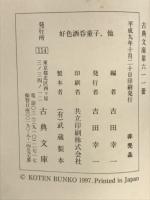 古典文庫第六一一冊
平成九年十月二十日印刷発行
非売品
好色酒呑童子、他
編者 吉田幸一
発行者 吉田幸一
印刷所 共立印刷株式会社
製本者 (有)武蔵製本
発行所
東京都北区西ヶ原
古典文庫
© KOTEN BUNKO 1997. Printed in Japan